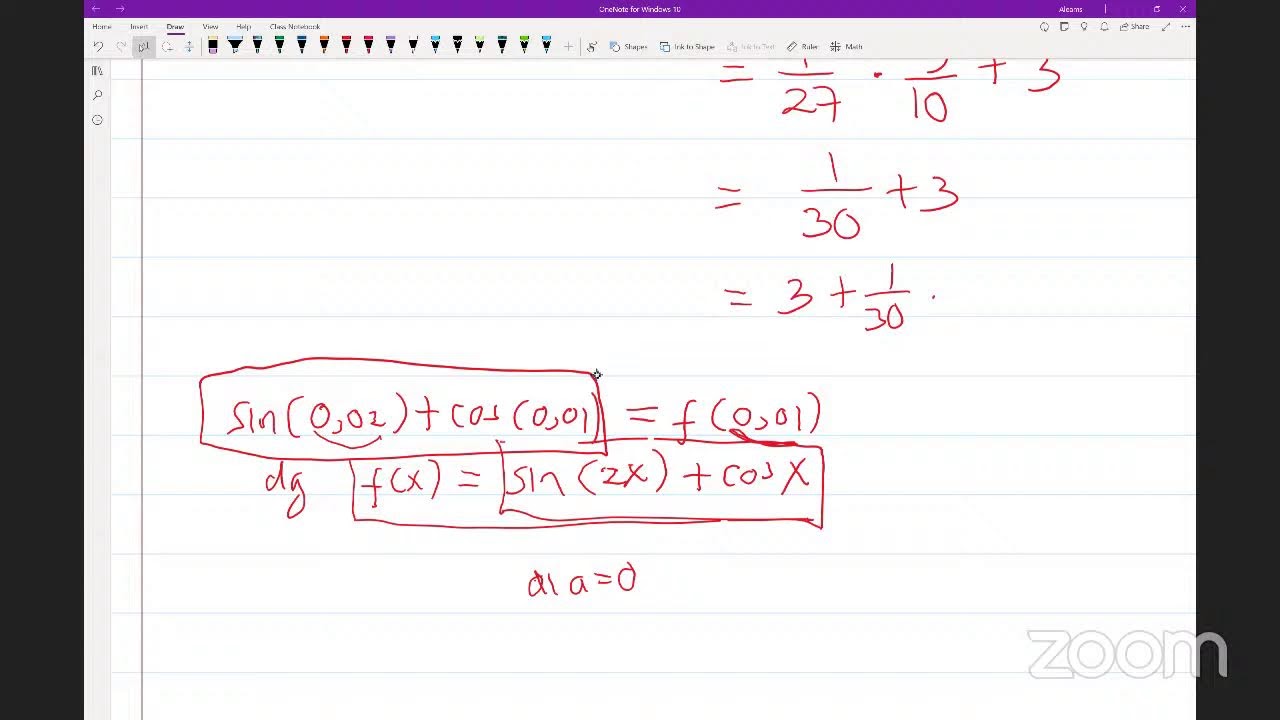 OneNote for Windows 10
Aleams
Home Insert Draw View Help Class Notebook
Share
Shapes Ink to Shape Ink to Text Ruler Math
= 1/27 · 3/10 + 3
= 1/30 + 3
= 3 + 1/30 .
sin(0,02) + cos(0,01) = f(0,01)
dg f(x) = sin(2x) + cos x
di a=0
zoom